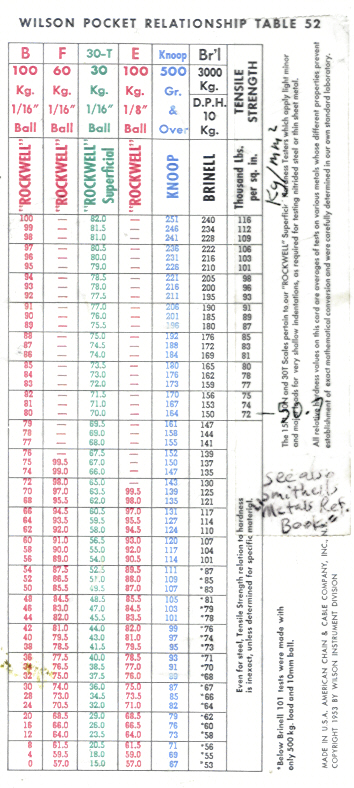 WILSON POCKET RELATIONSHIP TABLE 52
B F 30-T E Knoop Br'l
100 60 30 100 500 3000
Kg. Kg. Kg. Kg. Gr. Kg.
1/16" 1/16" 1/16" 1/8" & D.P.H. 10
Ball Ball Ball Ball Over Kg.
"ROCKWELL" "ROCKWELL" "ROCKWELL" Superficial "ROCKWELL" KNOOP BRINELL
TENSILE STRENGTH
Thousand Lbs. per sq. in.
Kg/mm2
100 — 82.0 — 251 240 116
99 — 81.5 — 246 234 112
98 — 81.0 — 241 228 109
97 — 80.5 — 236 222 106
96 — 80.0 — 231 216 103
95 — 79.0 — 226 210 101
94 — 78.5 — 221 205 98
93 — 78.0 — 216 200 96
92 — 77.5 — 211 195 93
91 — 77.0 — 206 190 91
90 — 76.0 — 201 185 89
89 — 75.5 — 196 180 87
88 — 75.0 — 192 176 85
87 — 74.5 — 188 172 83
86 — 74.0 — 184 169 81
85 — 73.5 — 180 165 80
84 — 73.0 — 176 162 78
83 — 72.0 — 173 159 77
82 — 71.5 — 170 156 75
81 — 71.0 — 167 153 74
80 — 70.0 — 164 150 72
79 — 69.5 — 161 147
78 — 69.0 — 158 144
77 — 68.0 — 155 141
76 — 67.5 — 152 139
75 99.5 67.0 — 150 137
74 99.0 66.0 — 147 135
72 98.0 65.0 — 143 130
70 97.0 63.5 99.5 139 125
68 95.5 62.0 98.0 135 121
66 94.5 60.5 97.0 131 117
64 93.5 59.5 95.5 127 114
62 92.0 58.0 94.5 124 110
60 91.0 56.5 93.0 120 107
58 90.0 55.0 92.0 117 104
56 89.0 54.0 90.5 114 101
54 87.5 52.5 89.5 111 *87
52 86.5 51.0 88.0 109 *85
50 85.5 49.5 87.0 107 *83
48 84.5 48.5 85.5 105 *81
46 83.0 47.0 84.5 103 *79
44 82.0 45.5 83.5 101 *78
42 81.0 44.0 82.0 99 *76
40 79.5 43.0 81.0 97 *74
38 78.5 41.5 79.5 95 *73
36 77.5 40.0 78.5 93 *71
34 76.5 38.5 77.0 91 *70
32 75.0 37.5 76.0 89 *68
30 74.0 36.0 75.0 87 *67
28 73.0 34.5 73.5 85 *66
24 70.5 32.0 71.0 82 *64
20 68.5 29.0 68.5 79 *62
16 66.0 26.0 66.5 76 *60
12 64.0 23.5 64.0 73 *58
8 61.5 20.5 61.5 71 *56
4 59.5 18.0 59.0 69 *55
0 57.0 15.0 57.0 67 *53
Even for steel, Tensile Strength relation to hardness
is inexact, unless determined for specific material.
*Below Brinell 101 tests were made with
only 500 kg. load and 10mm ball.
The and 30T Scales pertain to our "ROCKWELL" Superficial Testers which apply light minor
and major loads for very shallow indentations, as required for testing nitrided steel or thin sheet metal.
All relative hardness values on this card are averages of tests on various metals whose different properties prevent
establishment of exact mathematical conversion and were carefully determined in our own standard laboratory.
see also
Smithells
Metals Ref.
Book
MADE IN U.S.A. AMERICAN CHAIN & CABLE COMPANY, INC.
COPYRIGHT 1953 BY WILSON INSTRUMENT DIVISION